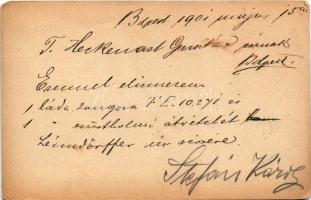 Bdpest 1901 május 15
T. Heckenast Gusztáv úrnak
Bdpest.
Ezennel elismerem
1 láda zongora F. E. 10.270 és
1 " átvételét
úr részére.
Stefán Károly